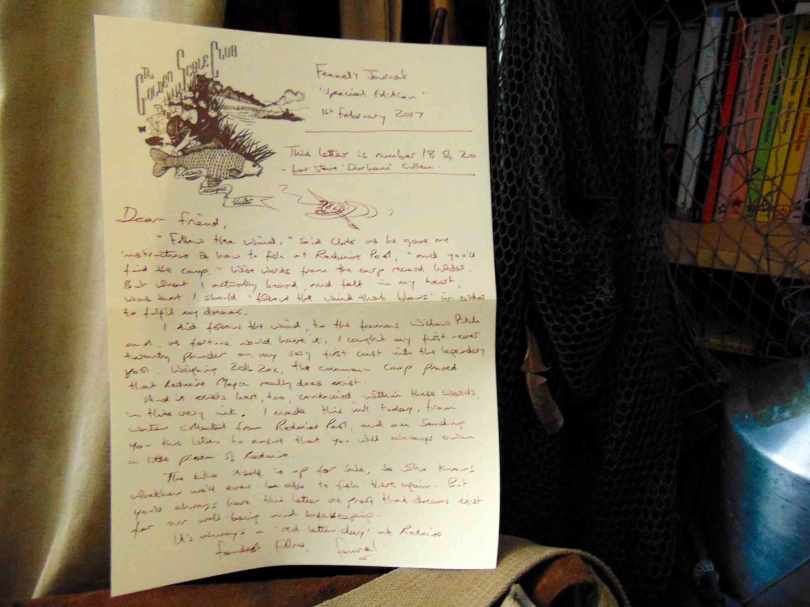 The
Golden Scale Club
Fennel's Journal
"Special Edition"
16th February 2017
This letter is number 18 of 20
- for Steve
Dear Friend,
"Follow the wind," said Chris as he gave me
instructions on how to fish at Redmire Pool, "and you'll
find the carp." Wise words from the carp record holder.
But what I actually heard, and felt in my heart,
was that I should 'follow the wind that blows' in order
to fulfil my dreams.
I did follow the wind, to the famous Willow Pitch
and, as fortune would have it, I caught my first-ever
twenty pounder on my very first cast into the legendary
pool. Weighing 20lb 2oz, the common carp proved
that Redmire Magic really does exist.
And it exists here, too, contained within these words,
in this very ink. I made this ink today, from
water collected from Redmire Pool, and am sending
you this letter to ensure that you will always own
a little piece of Redmire.
The lake itself is up for sale, so who knows
whether we'll ever be able to fish there again. But
you'll always have this letter as proof that dreams exist
for our well-being and
It's always a 'red letter day' at Redmire
Fennel